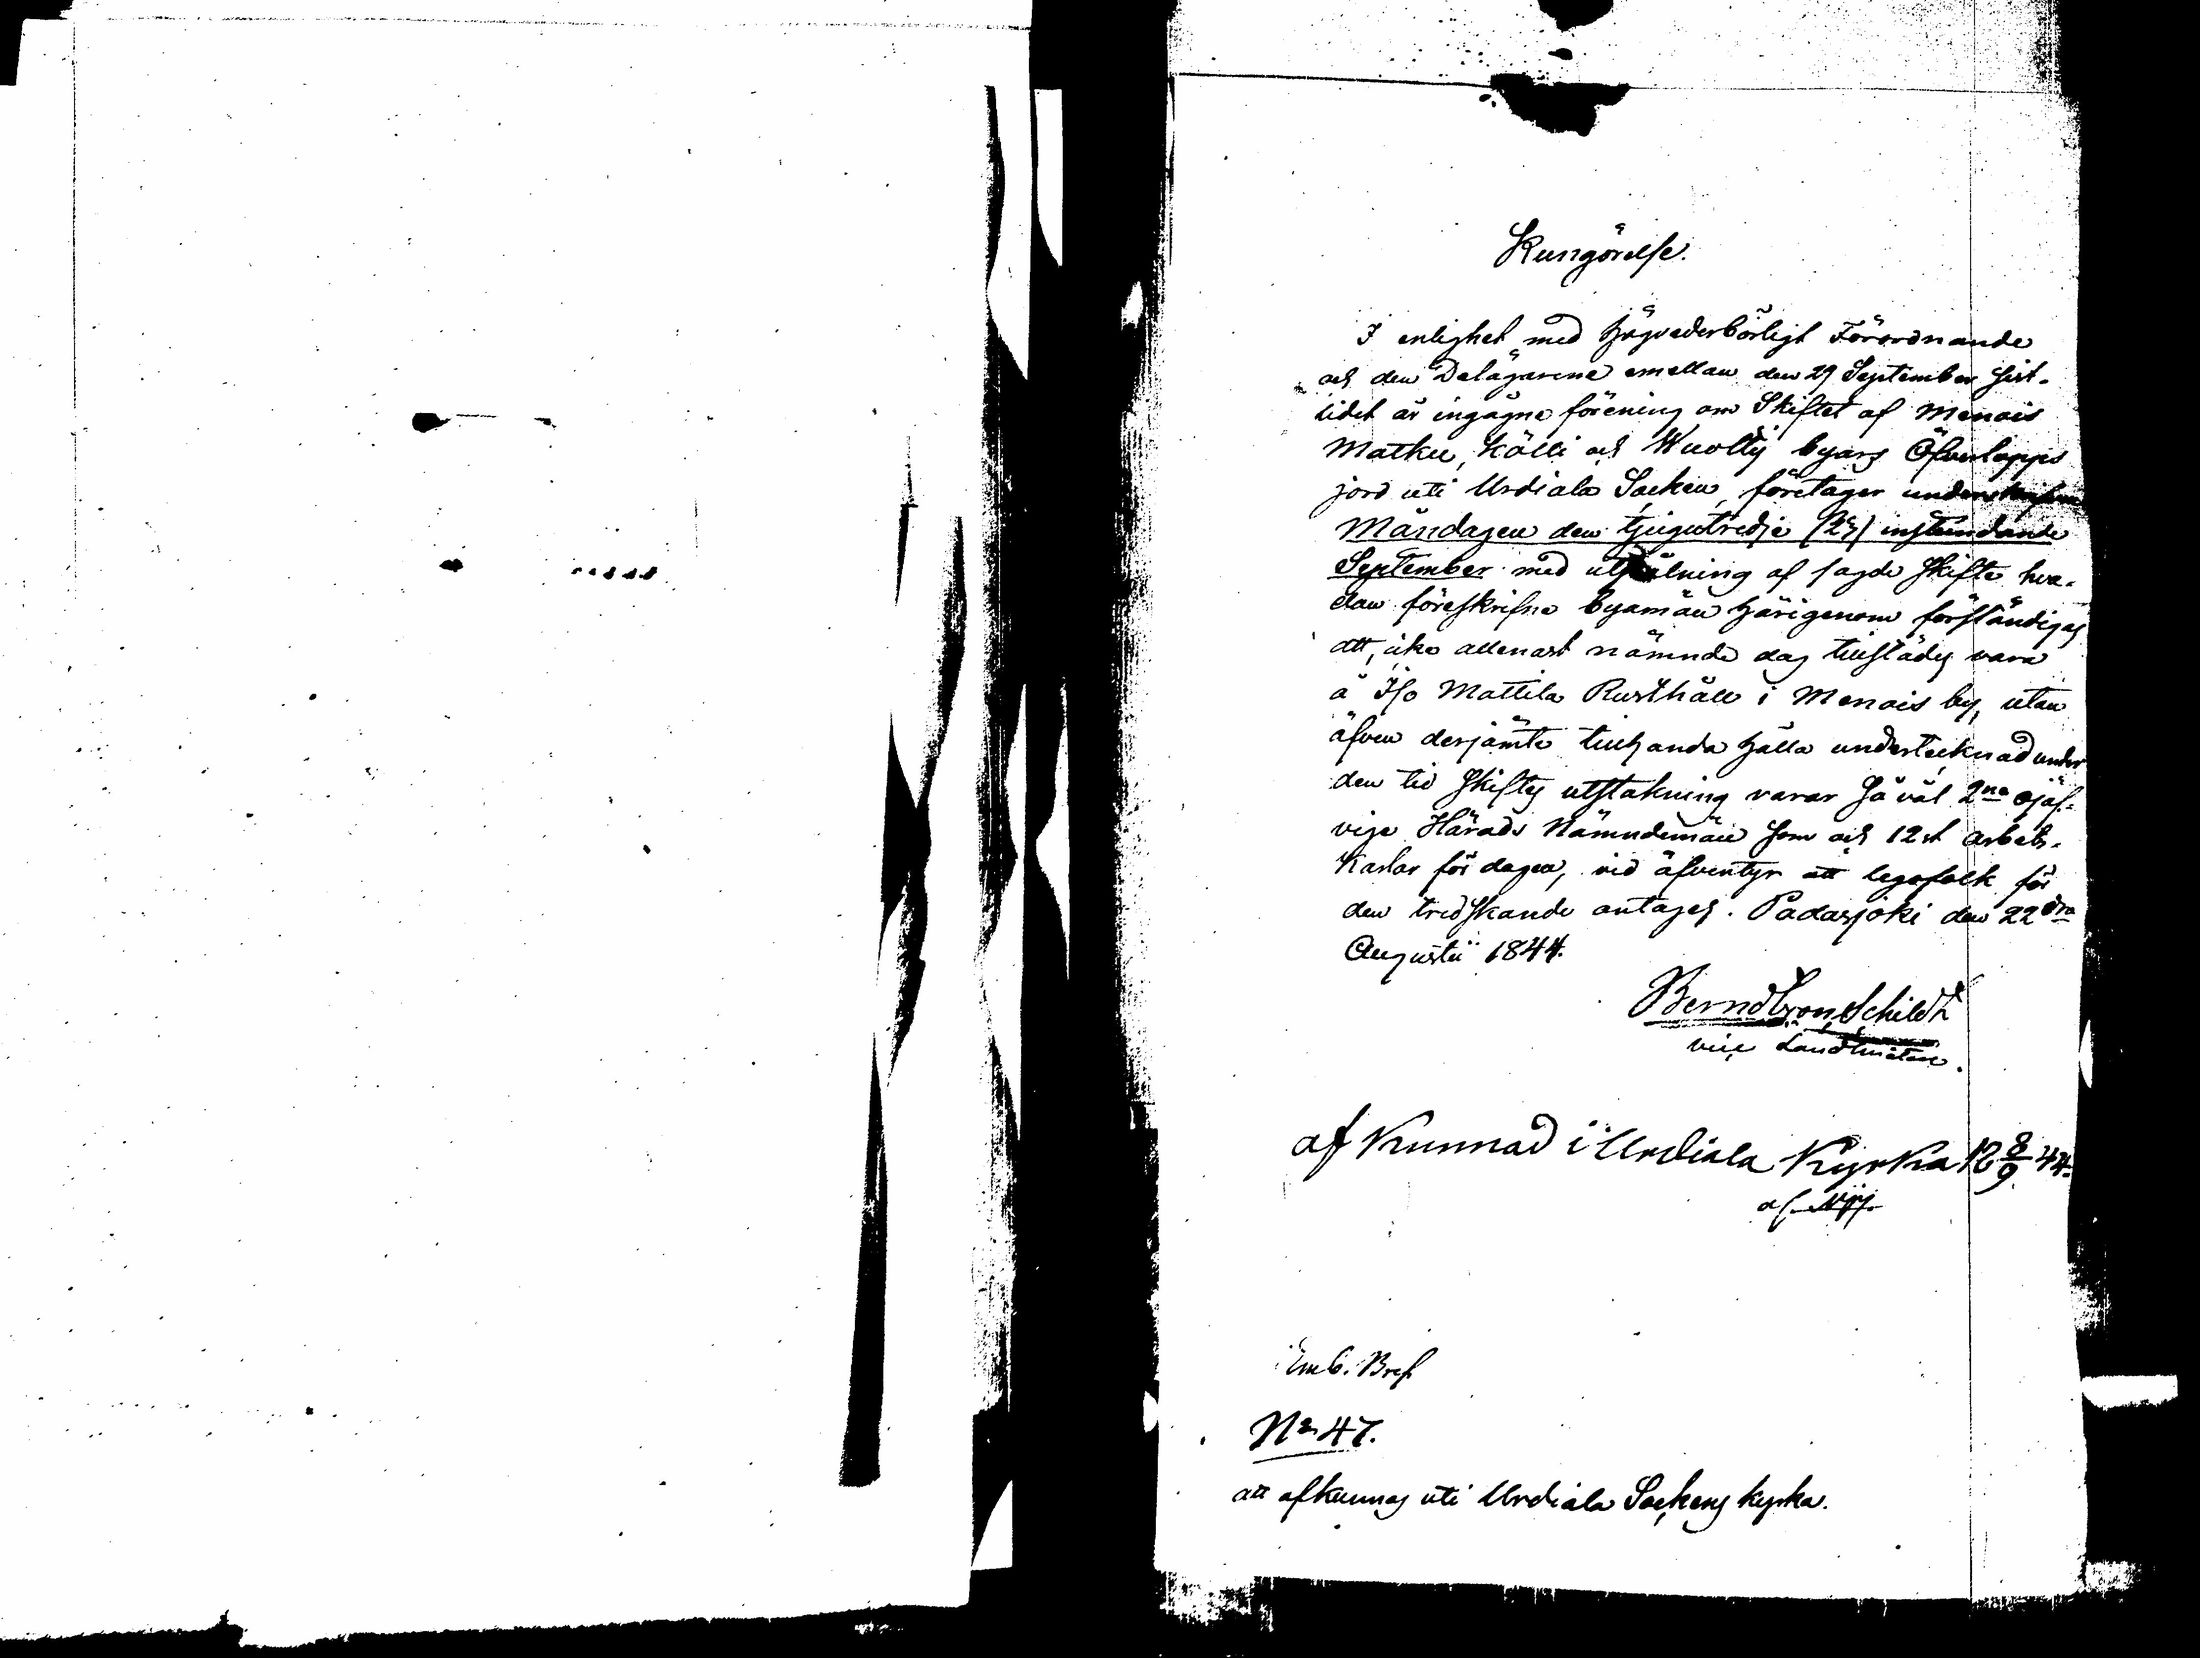 Kungörelse.
I enlighet med högvederbörligt Förordnande
och den Delägarene emellan den 29 September sist-
lidet år ingågne förening om Skiftet af Menois
Matku, Kölli och Wuolty byars Öfverlopps
jord uti Urdiala Socken, företager
Måndagen den tjugutredje (23) instundande
September med utstakning af sagde skifte hva-
dan föreskrifne byamän härigenom förständigas
att, icke allenast nämnde dag tillstädes vara
å Iso Mattila Rusthåll i Menois by, utan
äfven derjämte tillhanda hålla undertecknad under
den tid skiftes utstakning varar så väl 2ne ojäf-
vige Härads Nämndemän som och 12 st arbets-
Karlar för dagen, vid äfventyr att legofolk för
den tredskande antages. Padasjoki den 22dra
Augusti 1844.
Berndt von Schildt
vice Landtmätare.
af Kunnad i Urdiala Kyrka 18 8/9 44.
af
Emb. Bref
No 47.
att afkunnas uti Urdiala Sockens kyrka.